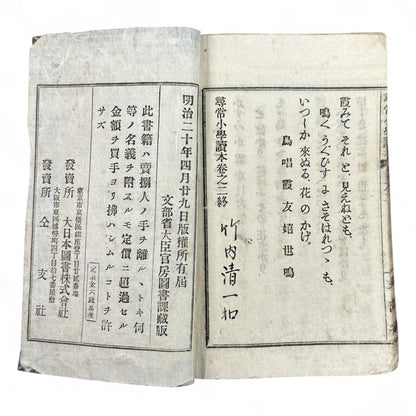 霞みて それ と、見えねども、
鳴く うぐひす よ さそはれつゝ も、
いつしか 來ぬる、花の かげ。
鳥 唱 霞 友 嬉 世 鳴
尋常小學讀本卷之二終
竹内清一
明治二十年四月廿九日版權所有屆
文部省大臣官房圖書課藏版
此書籍ハ賣捌人ノ手ヲ離ルヽトキ何
等ノ名義ヲ附スルモ定價ニ超過セル
金額ヲ買手ヨリ拂ハシムルコトヲ許
サズ
東京市京橋區銀座
發賣所 大日本圖書株式會社
大阪市東區博勞町四丁目十七番屋敷
發賣所 仝 支社